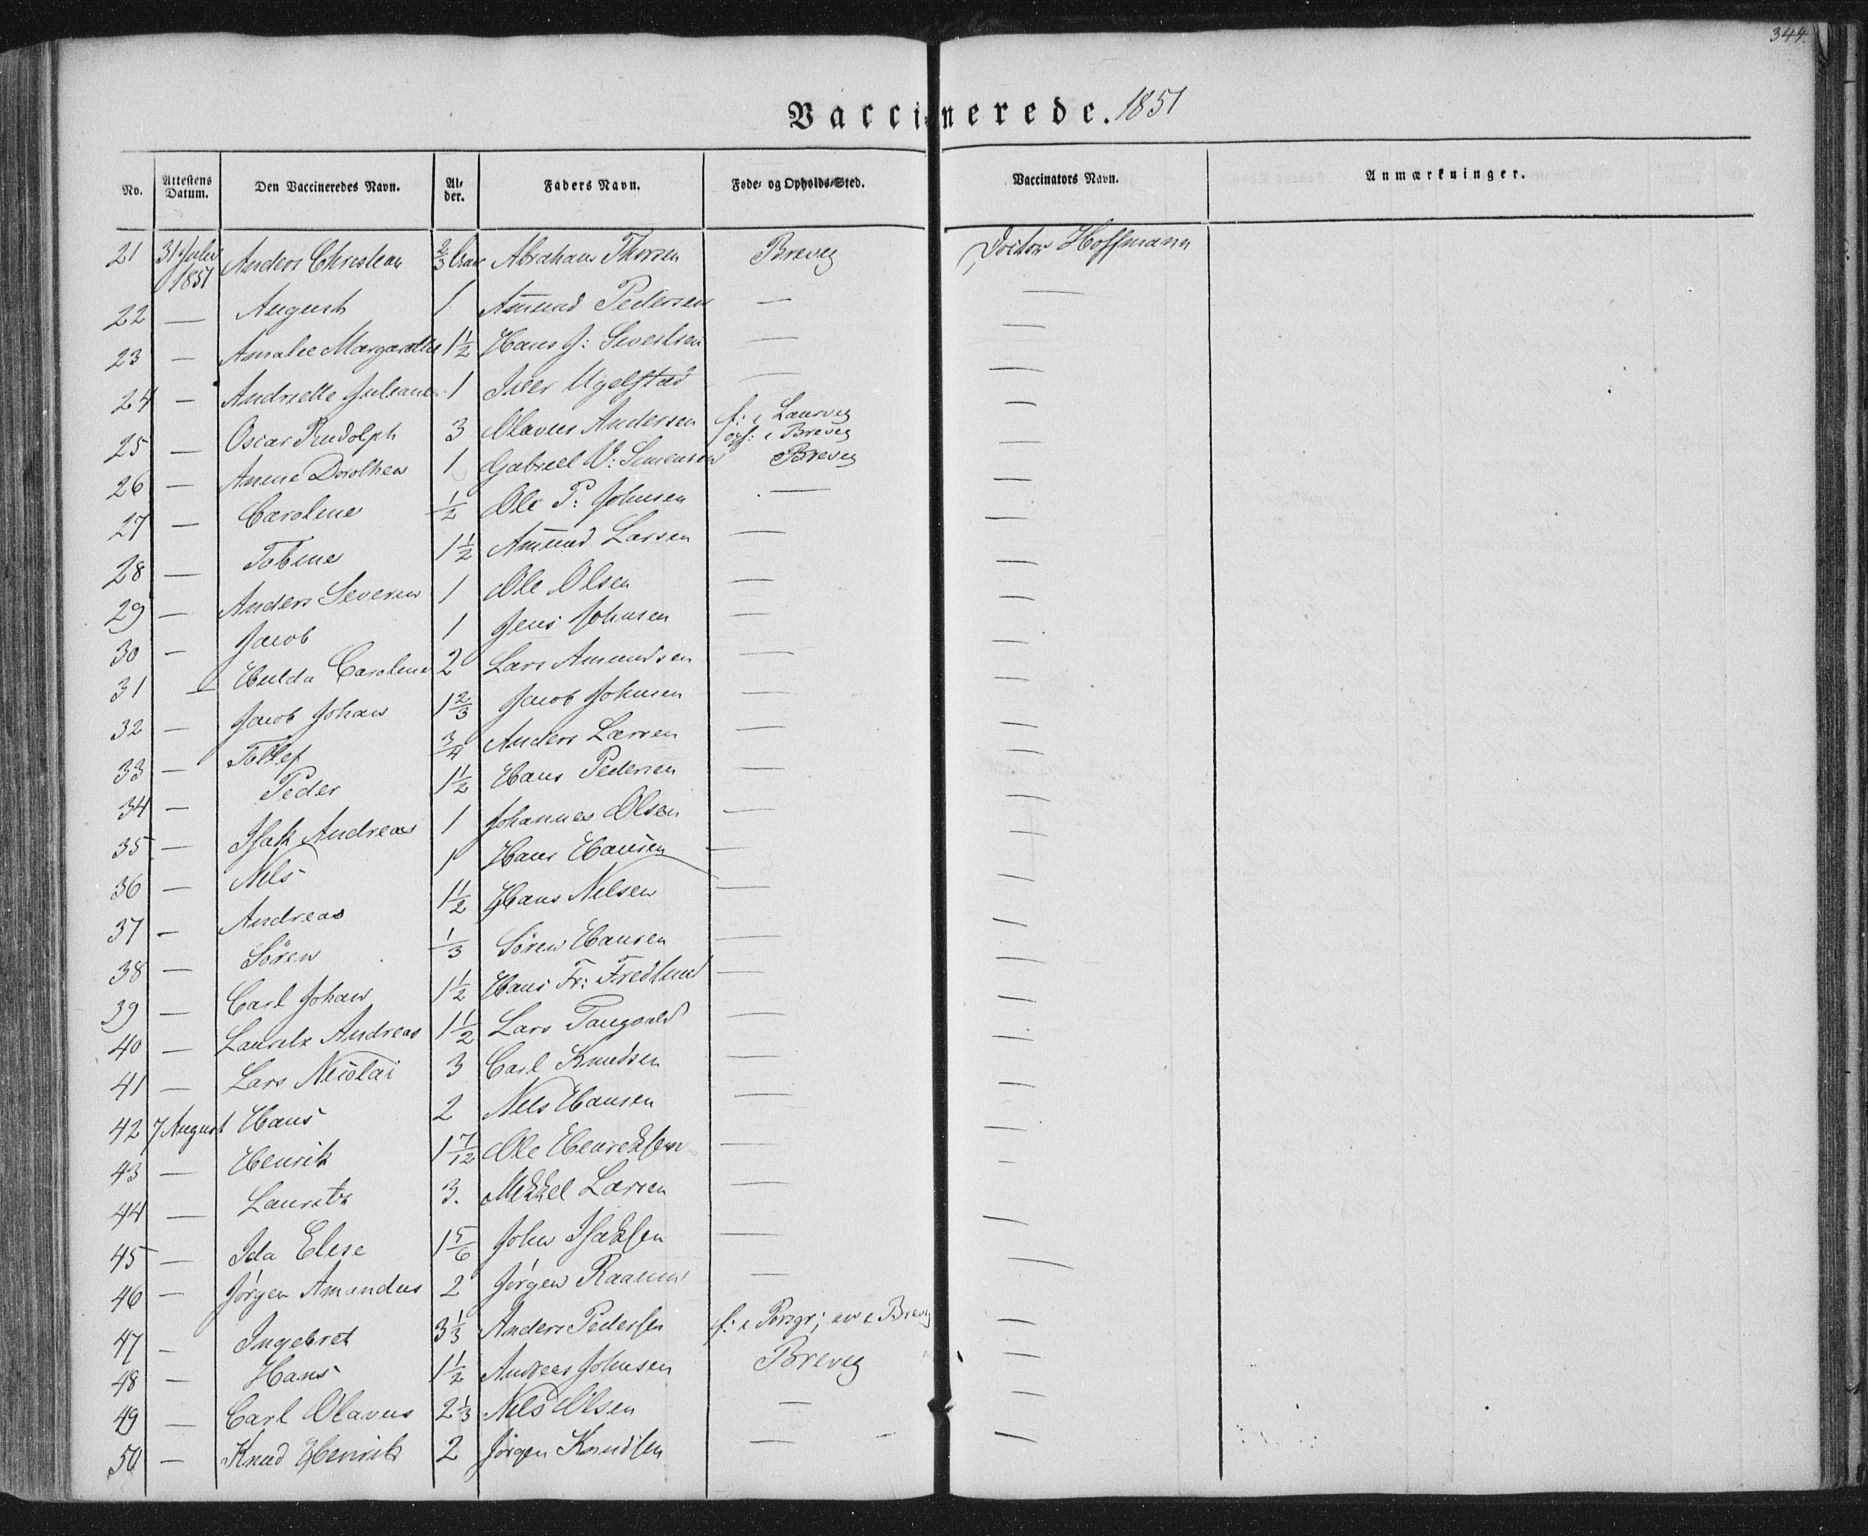 344.
Vaccinerede. 1851
No. Attestens Datum. Den Vaccineredes Navn. Al-der. Faders Navn. Føde- og Opholds-Sted. Vaccinators Navn. Anmærkninger.
21 31 Julii 1851 Anders Christian 2/3 Abraham Thorsen Brevig Doctor Hoffmann
22 — August 1 Amund Pedersen — —
23 — Amalie Margarethe 1 1/2 Hans J: Sivertsen — —
24 — Andrette Juliane 1 Iver Ugelstad — —
25 — Oscar Rudolph 3 Olavus Andersen f: i Laurvig oph: i Brevig —
26 — Anne Dorothea 1 Gabriel V: Simonsen Brevig —
27 — Caroline 1/2 Ole P: Johnsen — —
28 — Tobine 1 1/2 Amund Larsen — —
29 — Anders Severin 1 Ole Olsen — —
30 — Jacob 1 Jens Johnsen — —
31 — Hulda Caroline 2 Lars Amundsen — —
32 — Jacob Johan 1 2/3 Jacob Johnsen — —
33 — Tollef 3/4 Anders Larsen — —
34 — Peder 1 1/2 Hans Pedersen — —
35 — Isak Andreas 1 Johannes Olsen — —
36 — Nils 1 Hans Hansen — —
37 — Andreas 1 1/2 Hans Nilsen — —
38 — Søren 1/3 Søren Hansen — —
39 — Carl Johan 1 1/2 Hans Fr: Fredlund — —
40 — Lauritz Andreas 1 1/2 Lars Tangvald — —
41 — Lars Nicolai 3 Carl Knudsen — —
42 7 August Hans 2 Nils Hansen — —
43 — Henrik 1 7/12 Ole Henriksen — —
44 — Lauritz 3. Mikkel Larsen — —
45 — Ida Elise 1 5/6 John Isaksen — —
46 — Jørgen Amandus 2 Jørgen — —
47 — Ingebret 3 1/3 Anders Pedersen f: i Porsgr; i Brevig —
48 — Hans 1 1/2 Andreas Johnsen Brevig —
49 — Carl Olavus 2 1/3 Nils Olsen — —
50 — Knud Henrik 2 Jørgen Knudsen — —